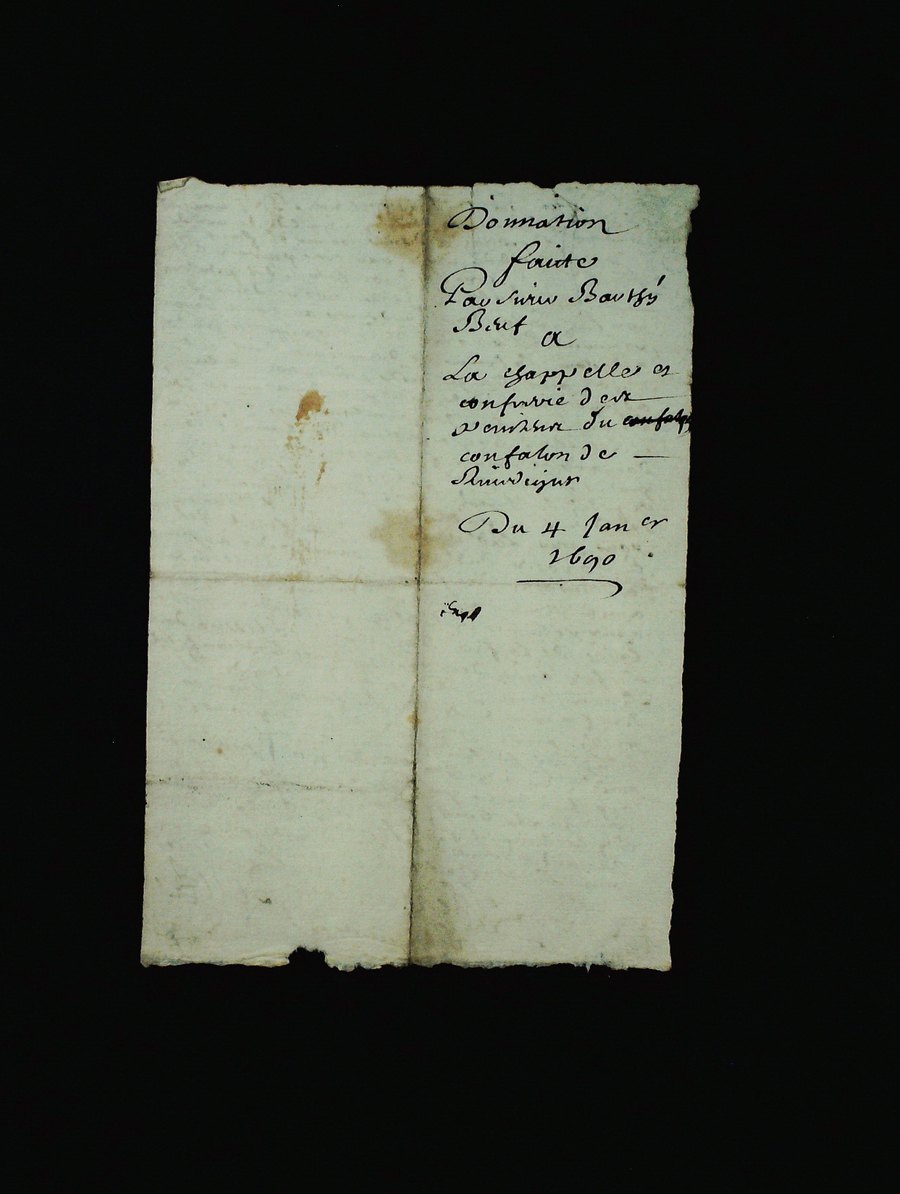 Donnation
faicte
Par sieur Barthy
Beuf
A
La chappelle et
confrerie des
penitens du
confalon de
Du 4 Jan er
1690